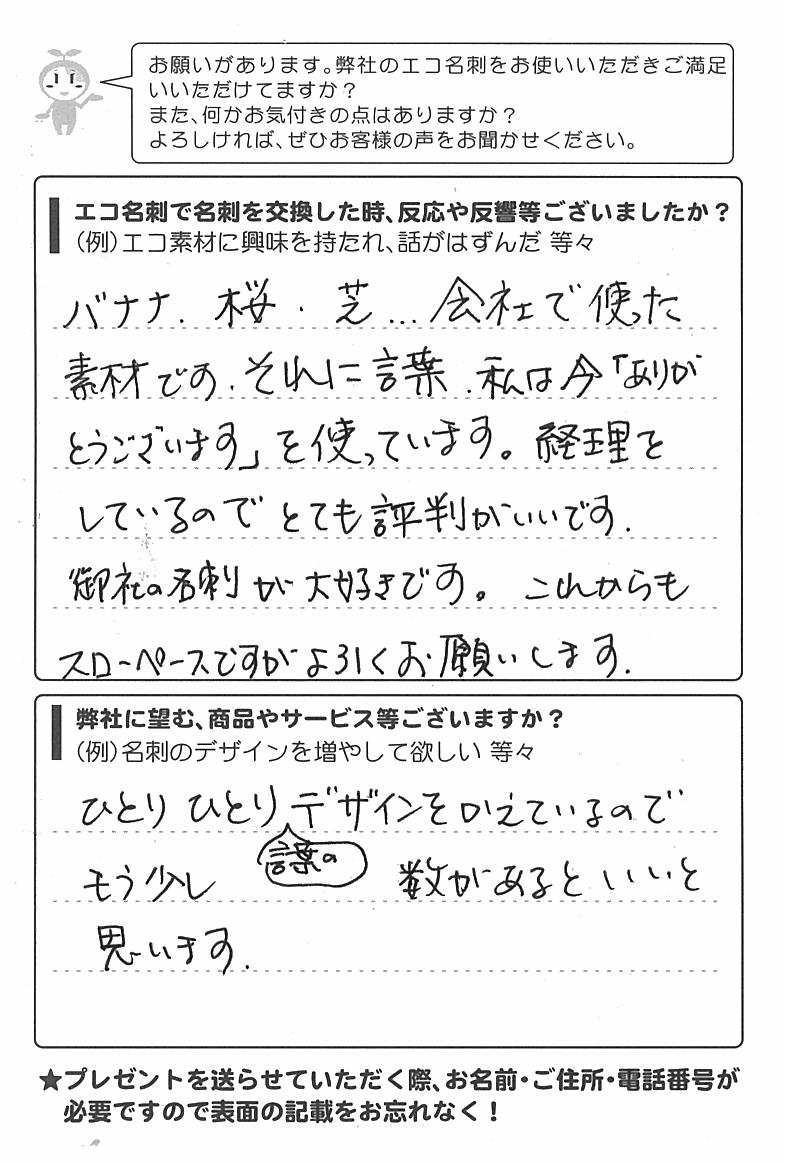 お願いがあります。弊社のエコ名刺をお使いいただきご満足
いいただけてますか？
また、何かお気付きの点はありますか？
よろしければ、ぜひお客様の声をお聞かせください。
エコ名刺で名刺を交換した時、反応や反響等ございましたか？
（例）エコ素材に興味を持たれ、話がはずんだ 等々
バナナ．桜．芝…会社で使った
素材です．それに言葉．私は今「ありが
とうございます」を使っています。経理を
しているのでとても評判がいいです．
御社の名刺が大好きです。これからも
スローペースですがよろしくお願いします．
弊社に望む、商品やサービス等ございますか？
（例）名刺のデザインを増やして欲しい 等々
ひとりひとりデザインをかえているので
言葉の
もう少し 数があるといいと
思います．
★プレゼントを送らせていただく際、お名前・ご住所・電話番号が
必要ですので表面の記載をお忘れなく！